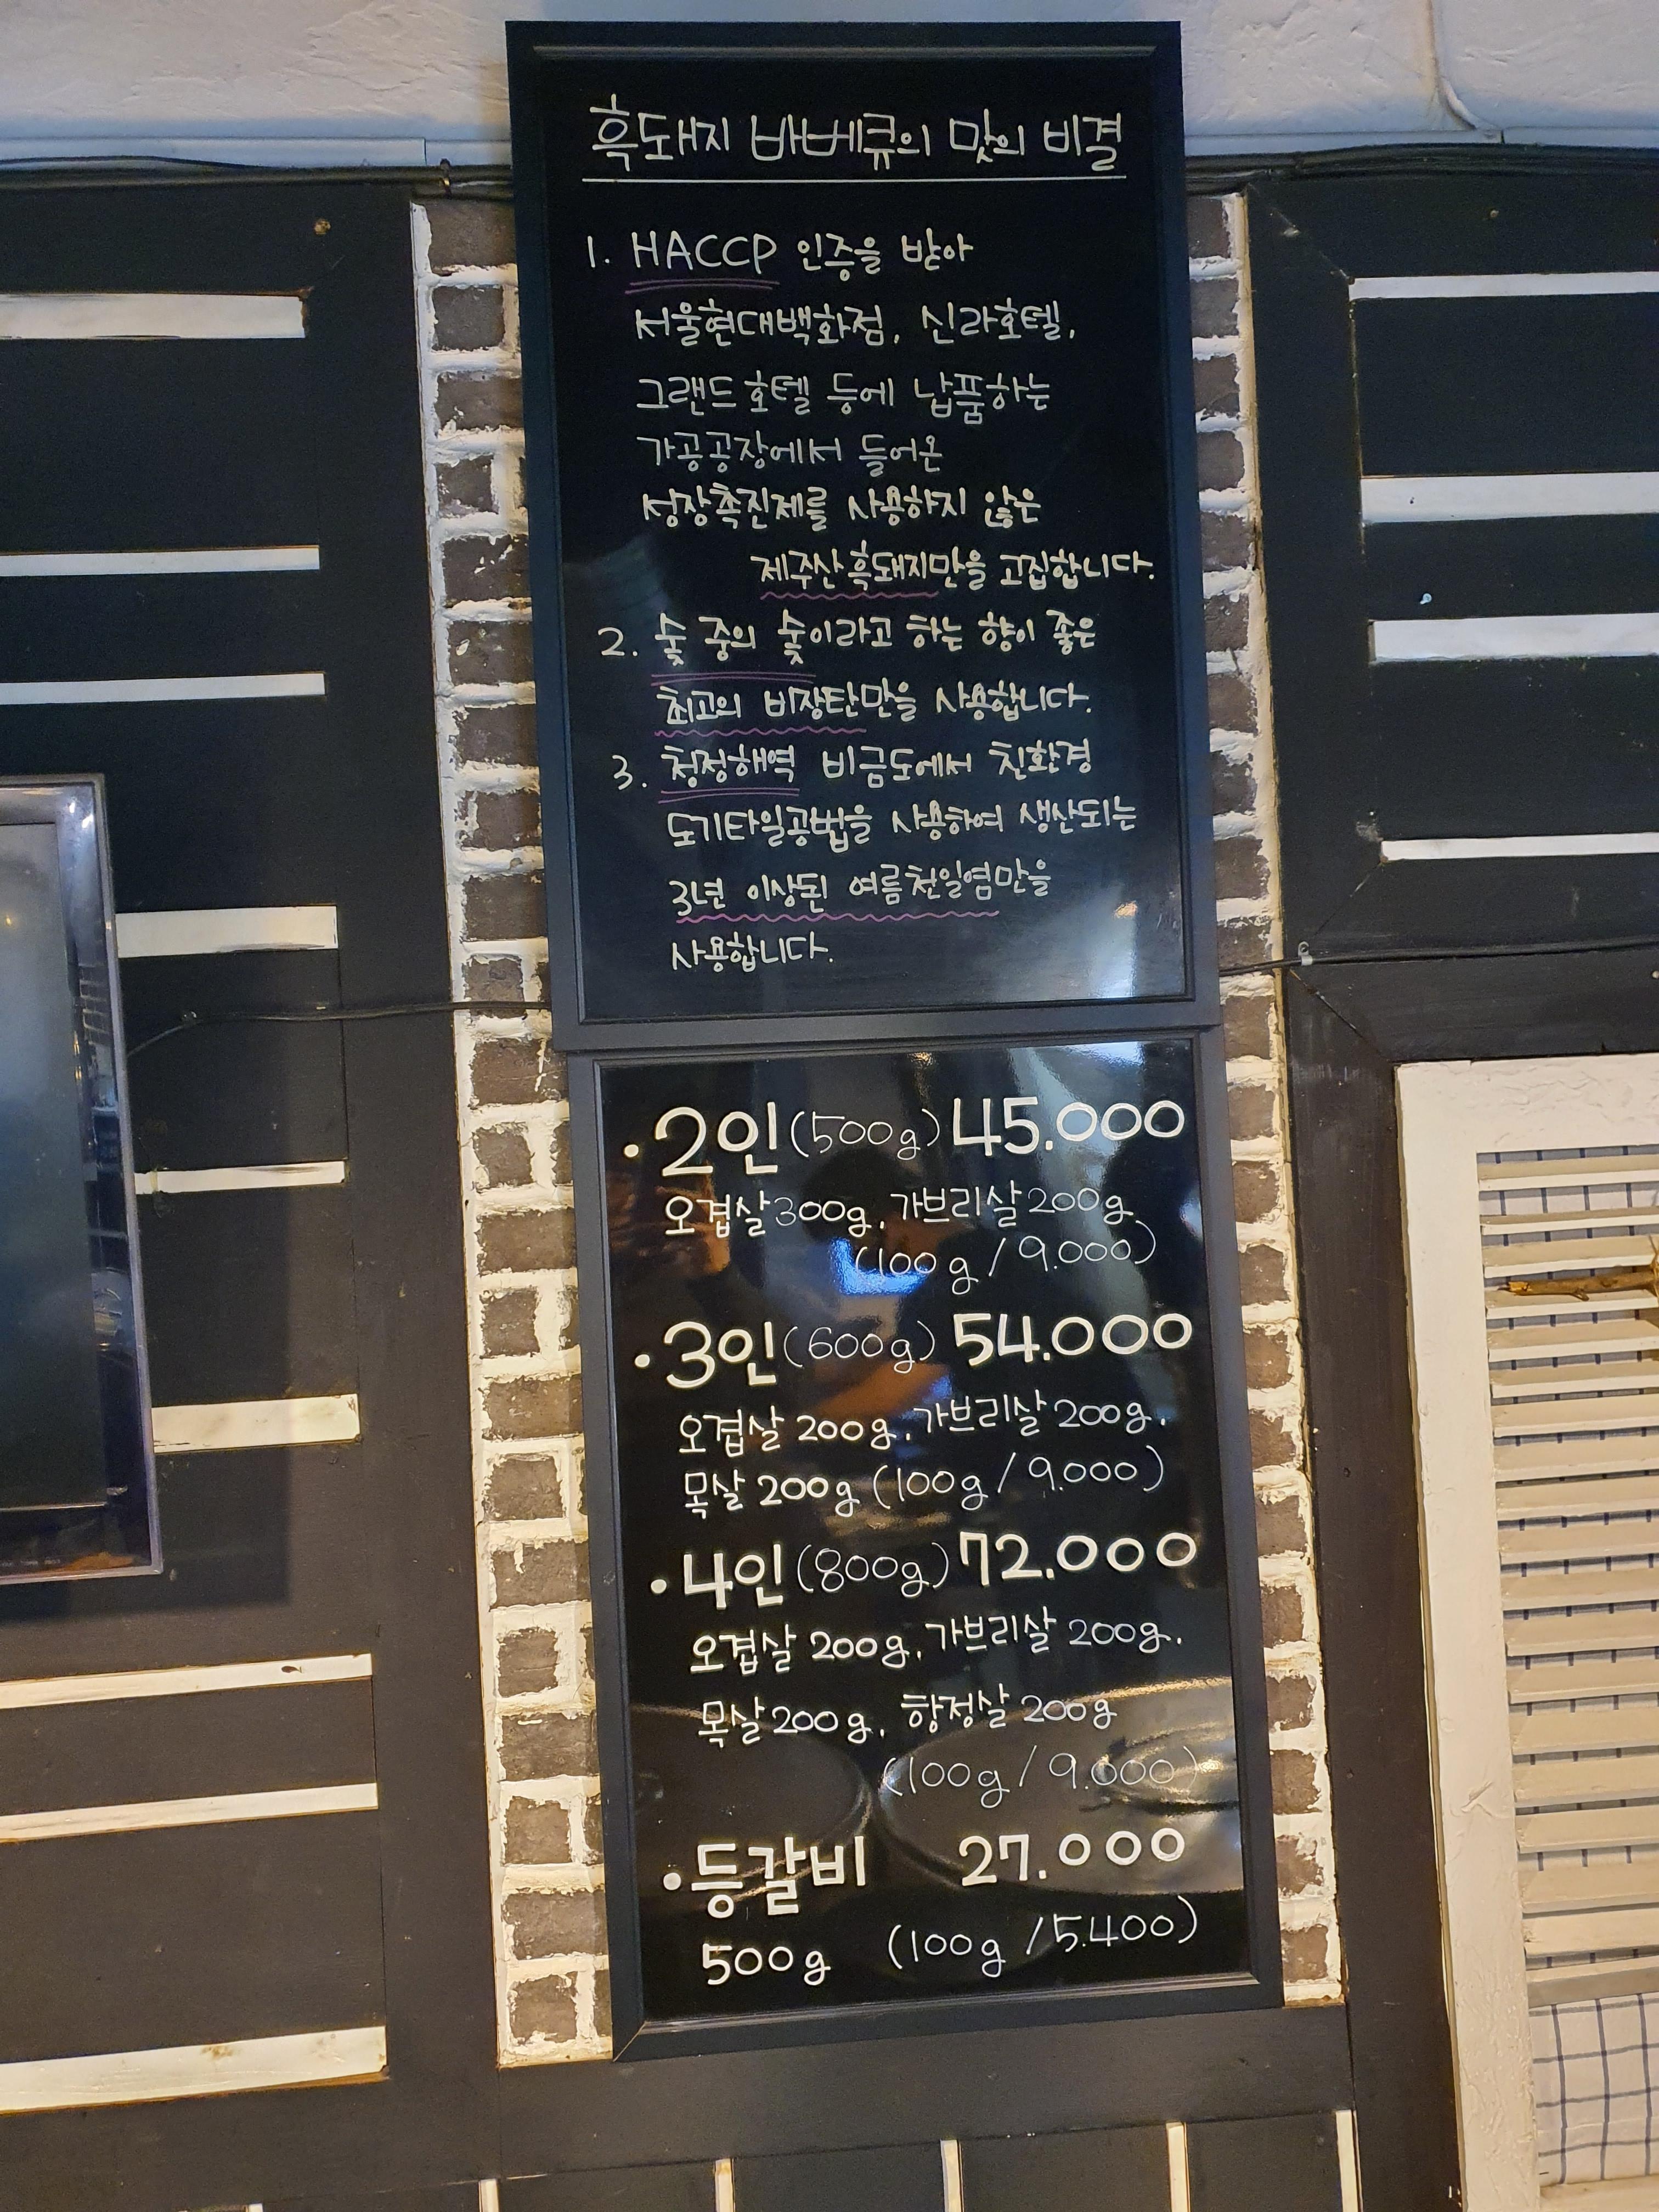 흑돼지 바베큐의 맛의 비결
1. HACCP 인증을 받아
서울현대백화점, 신라호텔,
그랜드호텔 등에 납품하는
가공공장에서 들어온
성장촉진제를 사용하지 않은
제주산흑돼지만을 고집합니다.
2. 숯 중의 숯이라고 하는 향이 좋은
최고의 비장탄만을 사용합니다.
3. 청정해역 비금도에서 친환경
도기타일공법을 사용하여 생산되는
3년 이상된 여름천일염만을
사용합니다.
·2인(500g) 45.000
오겹살300g, 가브리살200g
(100g/9.000)
·3인(600g) 54.000
오겹살 200g, 가브리살 200g,
목살 200g (100g/9.000)
·4인(800g) 72.000
오겹살 200g, 가브리살 200g,
목살200g, 항정살 200g
(100g/9.000)
·등갈비 27.000
500g (100g/5.400)